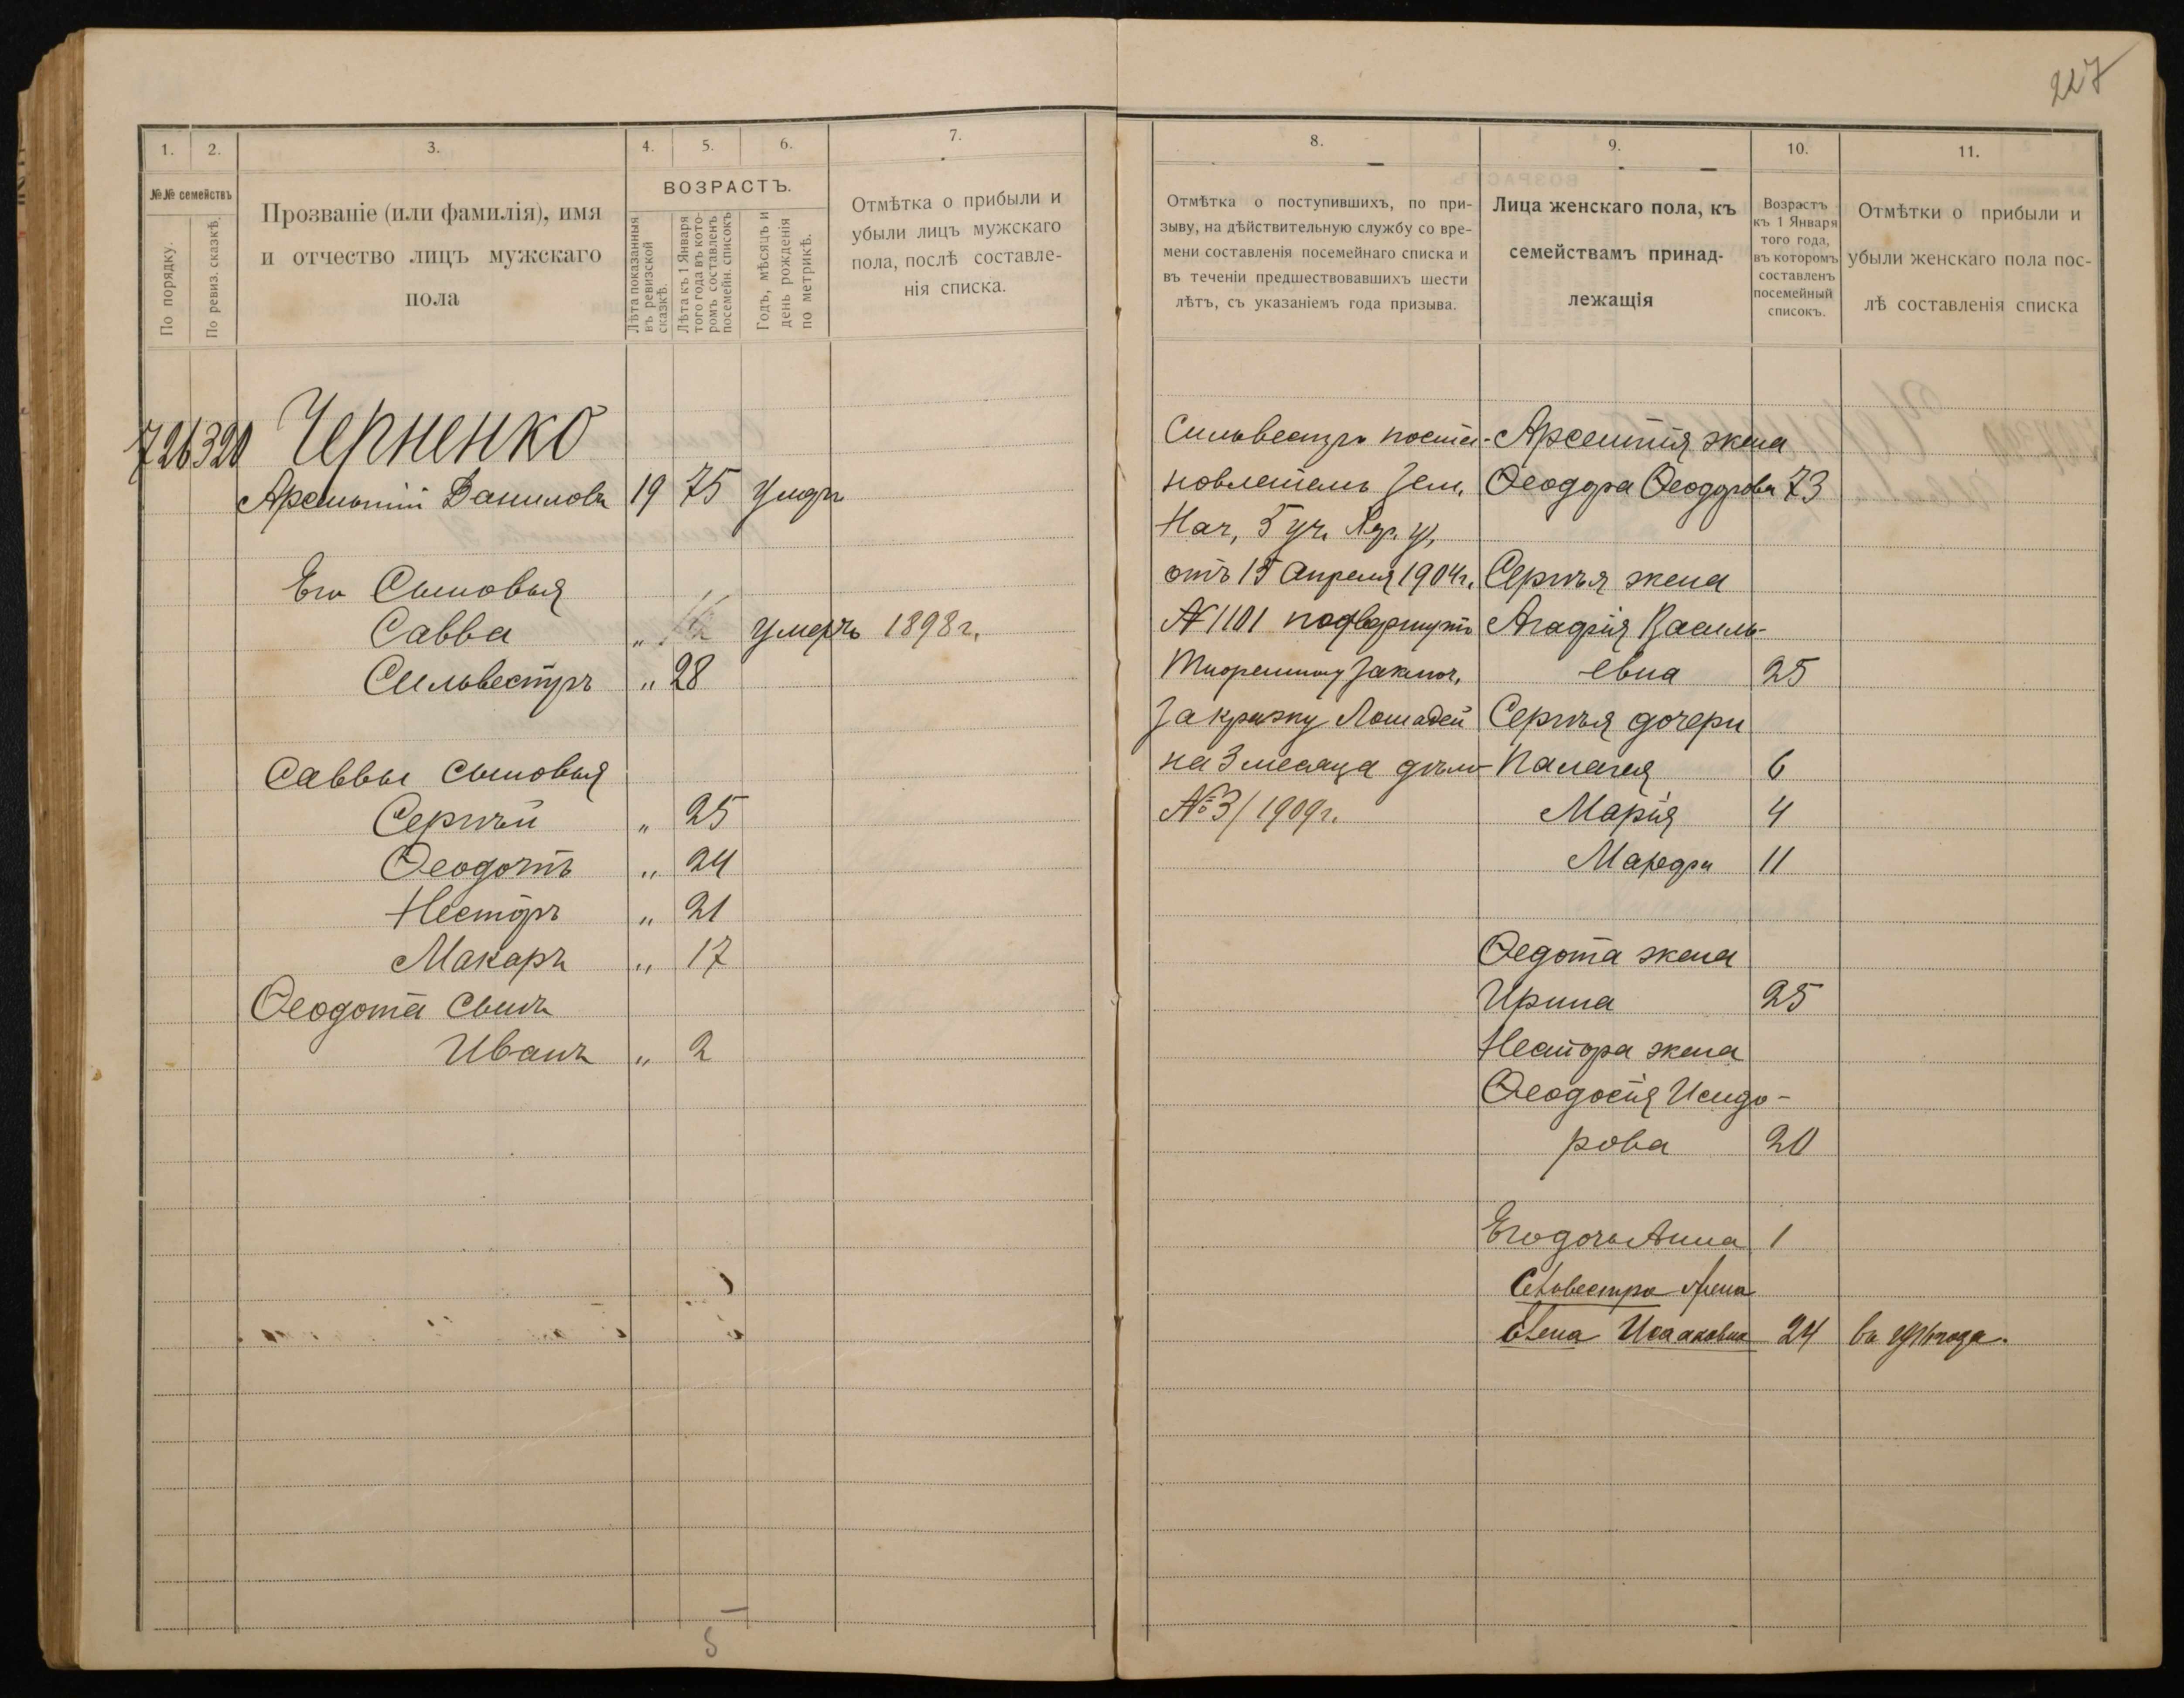 227
1.
2.
3.
4.
5.
6.
7.
№№ семействъ
По порядку.
По ревиз. сказкѣ.
Прозваніе (или фамилія), имя
и отчество лицъ мужскаго
пола
ВОЗРАСТЪ.
Лѣта показанныя
въ ревизской
сказкѣ.
Лѣта къ 1 Января
того года въ кото-
ромъ составленъ
посемейн. списокъ
Годъ, мѣсяцъ и
день рожденія
по метрикѣ.
Отмѣтка о прибыли и
убыли лицъ мужскаго
пола, послѣ составле-
нія списка.
726 320 Черненко
Арсентій Даниловъ 19 75 Умеръ
Его Сыновья
Савва " умеръ 1898 г.
Сильвестръ " 28
Саввы сыновья
Сергѣй " 25
Ѳеодотъ " 24
Несторъ " 21
Макаръ " 17
Ѳеодота сынъ
Иванъ " 2
8.
9.
10.
11.
Отмѣтка о поступившихъ, по при-
зыву, на дѣйствительную службу со вре-
мени составленія посемейнаго списка и
въ теченіи предшествовавшихъ шести
лѣтъ, съ указаніемъ года призыва.
Лица женскаго пола, къ
семействамъ принад-
лежащія
Возрастъ
къ 1 Января
того года,
въ которомъ
составленъ
посемейный
списокъ.
Отмѣтки о прибыли и
убыли женскаго пола пос-
лѣ составленія списка
Сильвестръ поста-
новленіемъ Зем.
Нач. 5 уч. у.
отъ 15 Апреля 1904 г.
№ 1101 подвергнутъ
тюремному заключ.
за кражу Лошадей
на 3 месяца дѣло
№ 3/1909 г.
Арсентія жена
Ѳеодора Ѳеодорова 73
Сергѣя жена
Агафія Василь-
евна 25
Сергѣя дочери
Палагея 6
Марія 4
11
Ѳедота жена
Ирина 25
Нестора жена
Ѳеодосія Исидо-
рова 20
Его дочь Анна 1
жена
Елена Исааковна 24 въ года.
5